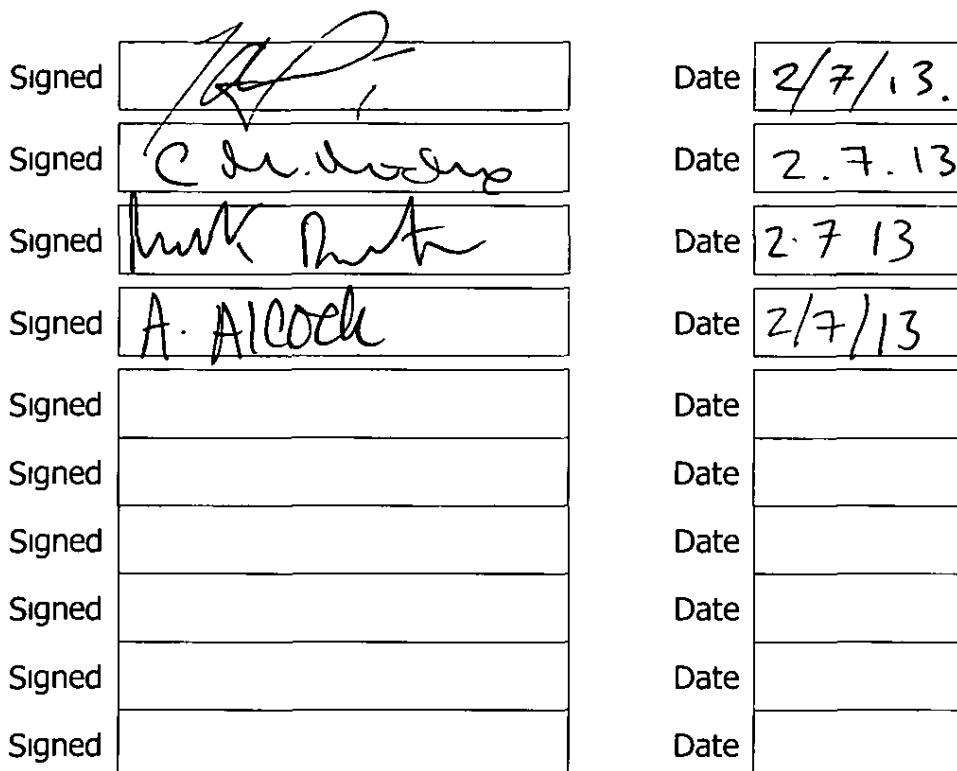 Signed Date 2/7/13.
Signed Date 2.7.13
Signed Date 2.7 13
Signed A. Alcock Date 2/7/13
Signed Date
Signed Date
Signed Date
Signed Date
Signed Date
Signed Date